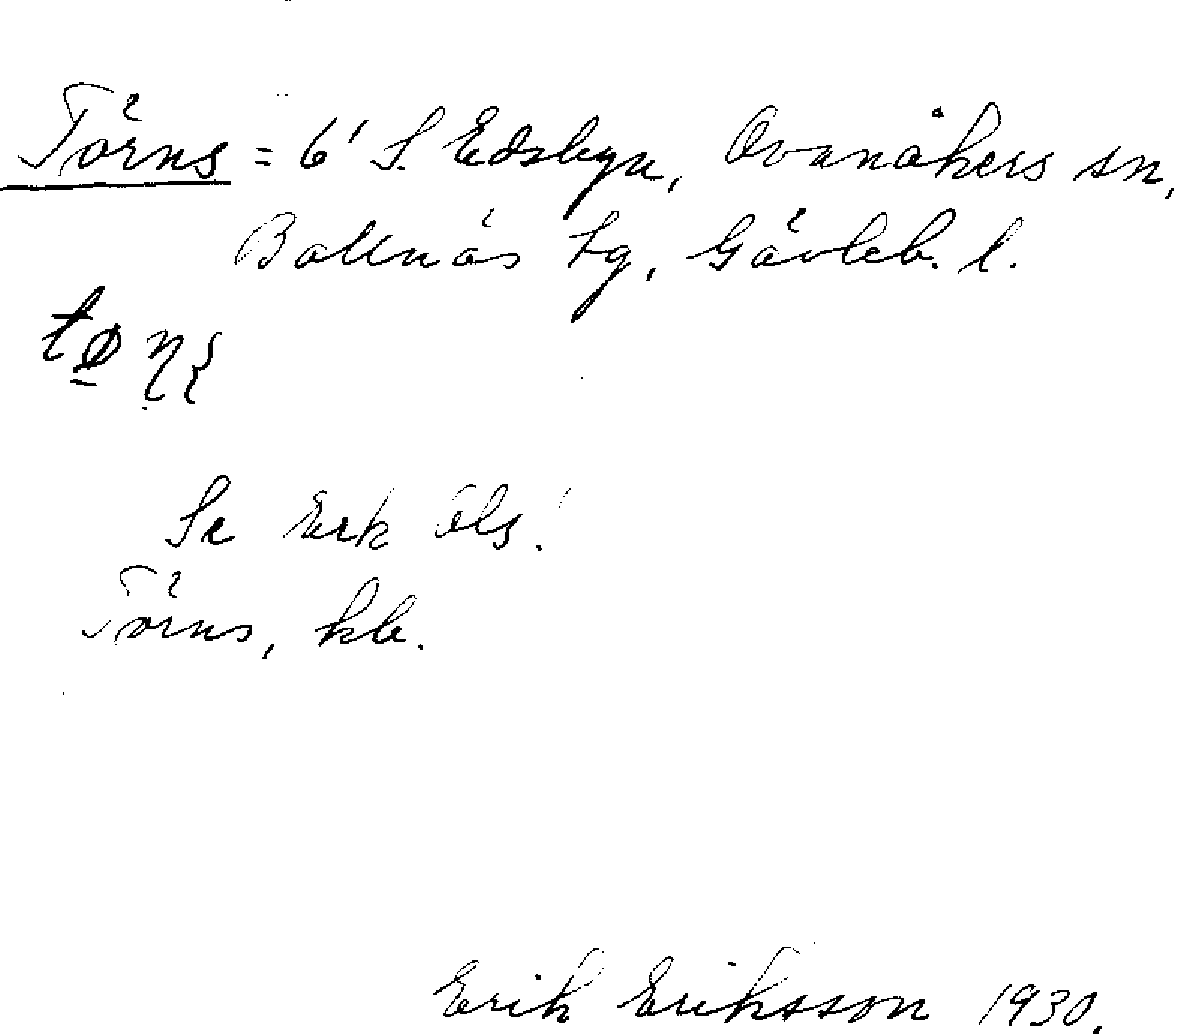 Törns = 6¹ S. Edsbyn, Ovanåkers sn,
Bollnäs tg, Gävleb. l.
Se Erk Ols!
Törns, kb.
Erik Eriksson 1930.